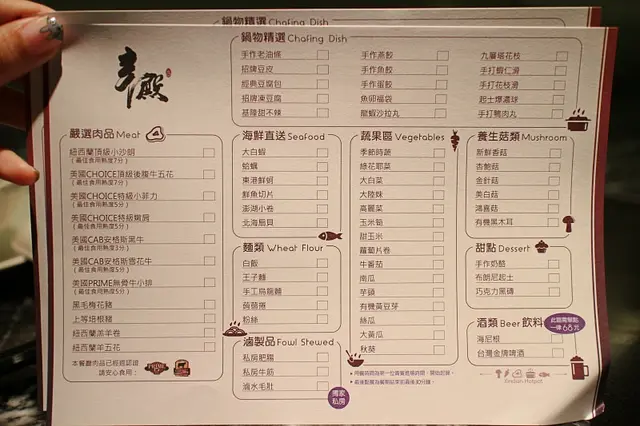 鍋物精選 Chafing Dish
鍋物精選 Chafing Dish
手作老油條
招牌豆皮
經典豆腐包
招牌凍豆腐
基隆甜不辣
手作燕餃
手作魚餃
手作蛋餃
魚卵福袋
龍蝦沙拉丸
九層塔花枝
手打蝦仁滑
手打花枝滑
起士爆漿球
手打豬肉丸
辛殿
嚴選肉品 Meat
紐西蘭頂級小沙朗
(最佳食用熟度7分)
美國CHOICE頂級後腹牛五花
(最佳食用熟度7分)
美國CHOICE特級小菲力
(最佳食用熟度5分)
美國CHOICE特級嫩肩
(最佳食用熟度5分)
美國CAB安格斯黑牛
(最佳食用熟度3分)
美國CAB安格斯雪花牛
(最佳食用熟度5分)
美國PRIME無骨牛小排
(最佳食用熟度5分)
黑毛梅花豬
上等培根豬
紐西蘭羔羊卷
紐西蘭羊五花
本餐廳肉品已經過認證
請安心食用:
PRIME
海鮮直送 Seafood
大白蝦
蛤蠣
東港鮮蚵
鮮魚切片
澎湖小卷
北海扇貝
麵類 Wheat Flour
白飯
王子麵
手工烏龍麵
蒟蒻捲
粉絲
滷製品 Fowl Stewed
私房肥腸
私房牛筋
滷水毛肚
獨家
私房
蔬果區 Vegetables
季節時蔬
綠花耶菜
大白菜
大陸妹
高麗菜
玉米筍
甜玉米
蘿蔔片卷
牛番茄
南瓜
芋頭
有機黃豆芽
絲瓜
大黃瓜
秋葵
養生菇類 Mushroom
新鮮香菇
杏鮑菇
金針菇
美白菇
鴻喜菇
有機黑木耳
甜點 Dessert
手作奶酪
布朗尼起士
巧克力黑磚
酒類 Beer 飲料
此區需餐點
一律68元
海尼根
台灣金牌啤酒
Xindian Hotpot